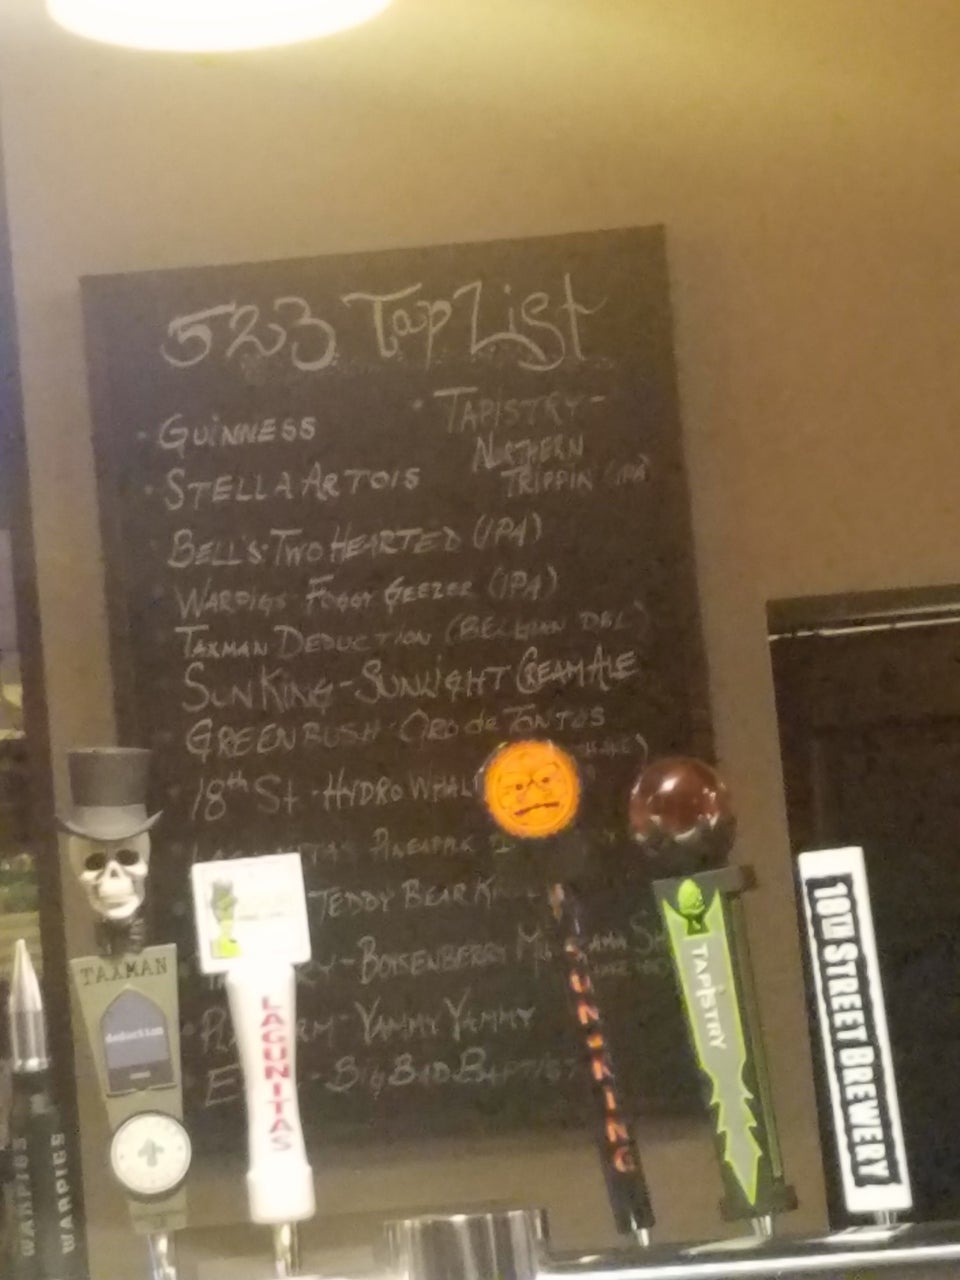 523 Tap List
· GUINNESS
· STELLA ARTOIS
· TAPISTRY -
NORTHERN
TRIPPIN (IPA)
BELL'S · TWO HEARTED (IPA)
WARPIGS - FOGGY GEEZER (IPA)
TAXMAN DEDUCTION (BELGIAN DBL)
SUN KING - SUNLIGHT CREAM ALE
GREENBUSH - ORO de TONTOS
18th St - HYDRO WHAL
LAGUNITAS PINEAPPLE
TEDDY BEAR
- BOYSENBERRY
- YAMMY YAMMY
- BIG BAD BAPTIST
TAXMAN
deduction
LAGUNITAS
SUN KING
TAPISTRY
18TH STREET BREWERY
WARPIGS
WARPIGS